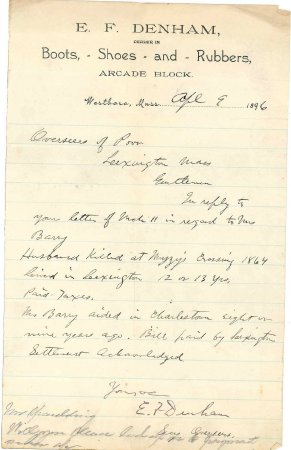 E. F. DENHAM,
DEALER IN
Boots, - Shoes - and - Rubbers,
ARCADE BLOCK.
Westboro, Mass. Apl 9 1896
Overseers of Poor
Lexington Mass
Gentlemen
In reply to
your letter of Mch 11 in regard to Mrs
Barry
Husband Killed at Muzzy's Crossing 1864
lived in Lexington 12 or 13 yrs.
Paid Taxes.
Mrs Barry aided in Charlestown eight or
nine years ago. Bill paid by Lexington
Settlement Acknowledged
Yours
E. F. Denham
Mr Spaulding
Will you please